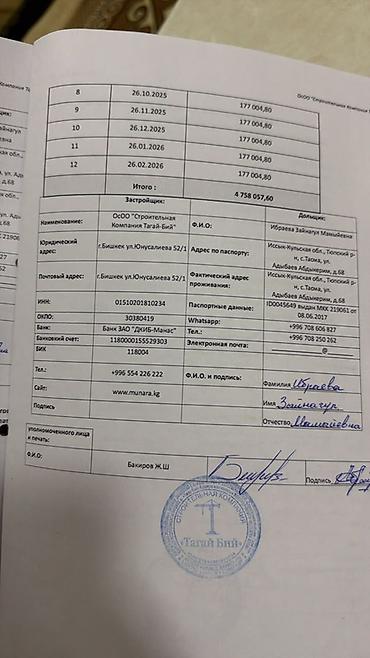 ОсОО "Строительная Компания
8 26.10.2025 177 004,80
9 26.11.2025 177 004,80
10 26.12.2025 177 004,80
11 26.01.2026 177 004,80
12 26.02.2026 177 004,80
Итого : 4 758 057,60
Застройщик: Дольщик:
Наименование: ОсОО "Строительная Компания Тагай-Бий" Ф.И.О: Ибраева Зайнагул Мамыйевна
Юридический адрес: г.Бишкек ул.Юнусалиева 52/1 Адрес по паспорту: Иссык-Кульская обл., Тюпский р-н, с.Таома, ул. Адыбаев Абдыкерим, д.68
Почтовый адрес: г.Бишкек ул.Юнусалиева 52/1 Фактический адрес проживания: Иссык-Кульская обл., Тюпский р-н, с.Таома, ул. Адыбаев Абдыкерим, д.68
ИНН: 01510201810234 Паспортные данные: ID0045649 выдан МКК 219061 от 08.06.2017
ОКПО: 30380419 Whatsapp: +996 708 606 827
Банк: Банк ЗАО "ДКИБ-Манас" Тел.: +996 708 250 262
Банковский счет: 1180000155529303 Электронная почта: @
БИК 118004
Тел.: +996 554 226 222 Ф.И.О и подпись: Фамилия Ибраева
Сайт: www.munara.kg Имя Зайнагул
Подпись Отчество Мамыйевна
уполномоченного лица и печать:
Ф.И.О: Бакиров Ж.Ш Подпись
СТРОИТЕЛЬНАЯ КОМПАНИЯ
«Тагай Бий»